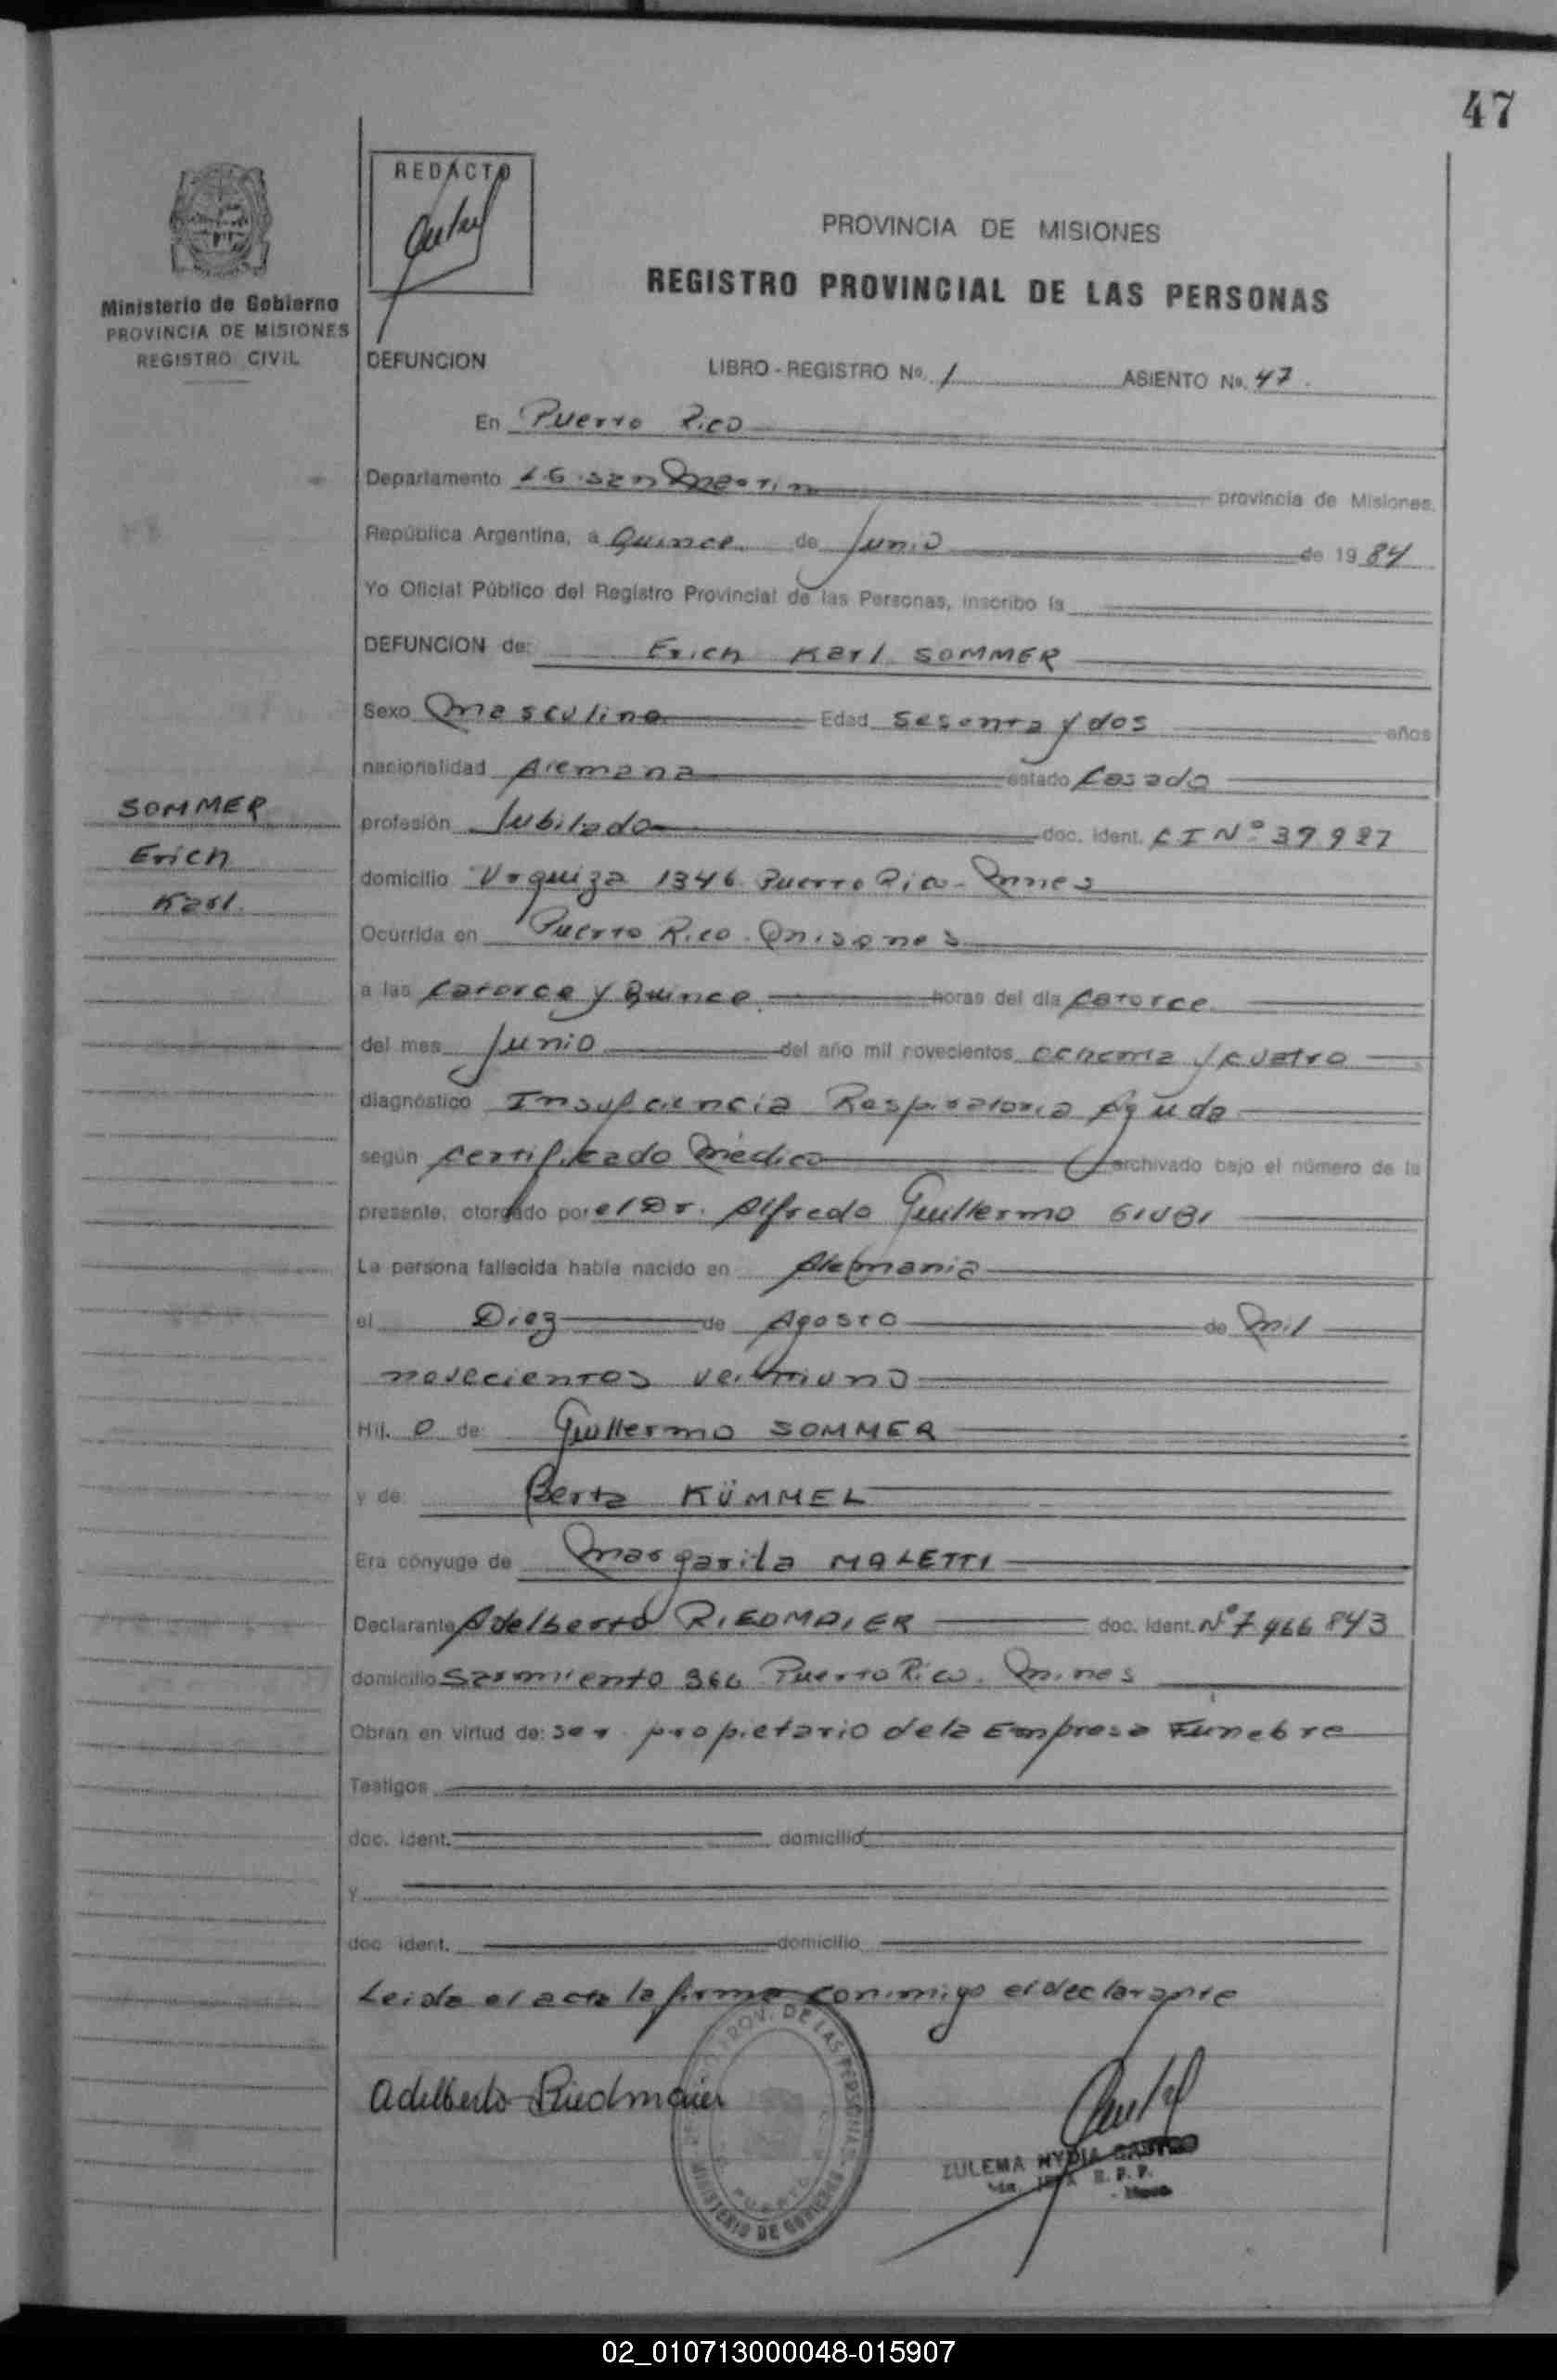 47
REDACTO
PROVINCIA DE MISIONES
REGISTRO PROVINCIAL DE LAS PERSONAS
Ministerio de Gobierno
PROVINCIA DE MISIONES
REGISTRO CIVIL
DEFUNCION LIBRO - REGISTRO No. 1 ASIENTO No. 47.
En Puerto Rico
Departamento L.G. San Martin provincia de Misiones.
República Argentina, a Quince de Junio de 19 84
Yo Oficial Público del Registro Provincial de las Personas, inscribo la
DEFUNCION de: Erich Karl SOMMER
Sexo Masculino Edad Sesenta y dos años
nacionalidad Alemana estado Casado
SOMMER
Erich
Karl.
profesión Jubilado doc. ident. C.I Nº 37.927
domicilio Urquiza 1346 Puerto Rico - Mnes
Ocurrida en Puerto Rico - Misiones
a las Catorce y Quince horas del día Catorce
del mes Junio del año mil novecientos ochenta y cuatro
diagnóstico Insuficiencia Respiratoria Aguda
según Certificado Médico archivado bajo el número de la
presente, otorgado por el Dr. Alfredo Guillermo GIUBI
La persona fallecida había nacido en Alemania
el Diez de Agosto de Mil
novecientos veintiuno
Hij. o de: Guillermo SOMMER
y de: Berta KÜMMEL
Era cónyuge de Margarita MALETTI
Declarante Adelberto RIEDMAIER doc. ident. Nº 7.466.843
domicilio Sarmiento 366 Puerto Rico. Mnes
Obran en virtud de: ser propietario de la Empresa Funebre
Testigos
doc. ident. domicilio
y
doc. ident. domicilio
Leida el acta la firma conmigo el declarante
Adelberto Riedmaier
PROV. DE LAS PERSONAS
MINISTERIO DE GOBIERNO
ZULEMA NYDIA CASTRO
02_010713000048-015907